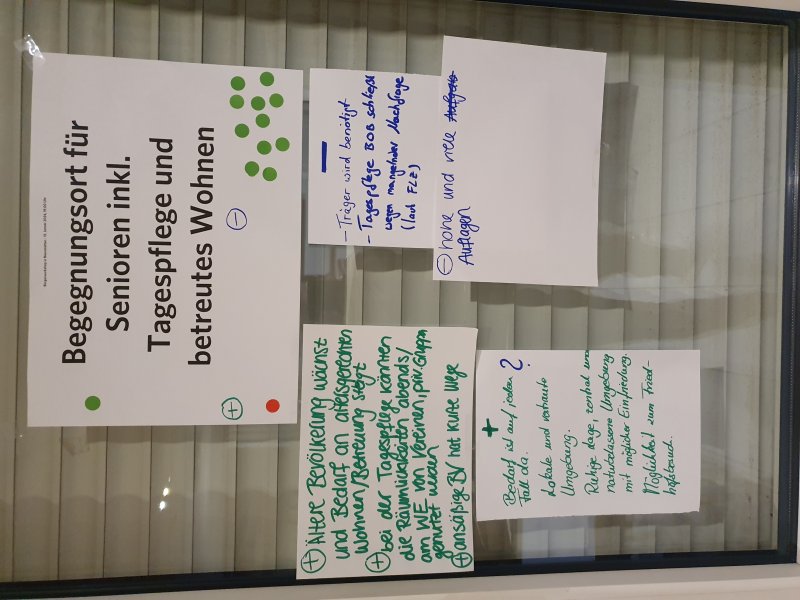 Begegnungsort für
Senioren inkl.
Tagespflege und
betreutes Wohnen
+
−
+ Ältere Bevölkerung wächst
und Bedarf an altersgerechten
Wohnen/Betreuung steigt
+ bei der Tagespflege könnten
die Räumlichkeiten abends/
am WE von Vereinen, priv. Gruppen
genutzt werden
+ ansäßige BV hat kurze Wege
−
- Träger wird benötigt
- Tagespflege BOB schließt
wegen mangelnder Nachfrage
(laut FLZ)
+
Bedarf ist auf jeden ?
Fall da.
Lokale und vertraute
Umgebung.
Ruhige Lage, zentral und
naturbelassene Umgebung
mit möglicher Einfriedung.
Möglichkeit zum Fried-
hofsbesuch.
− hohe und viele
Auflagen